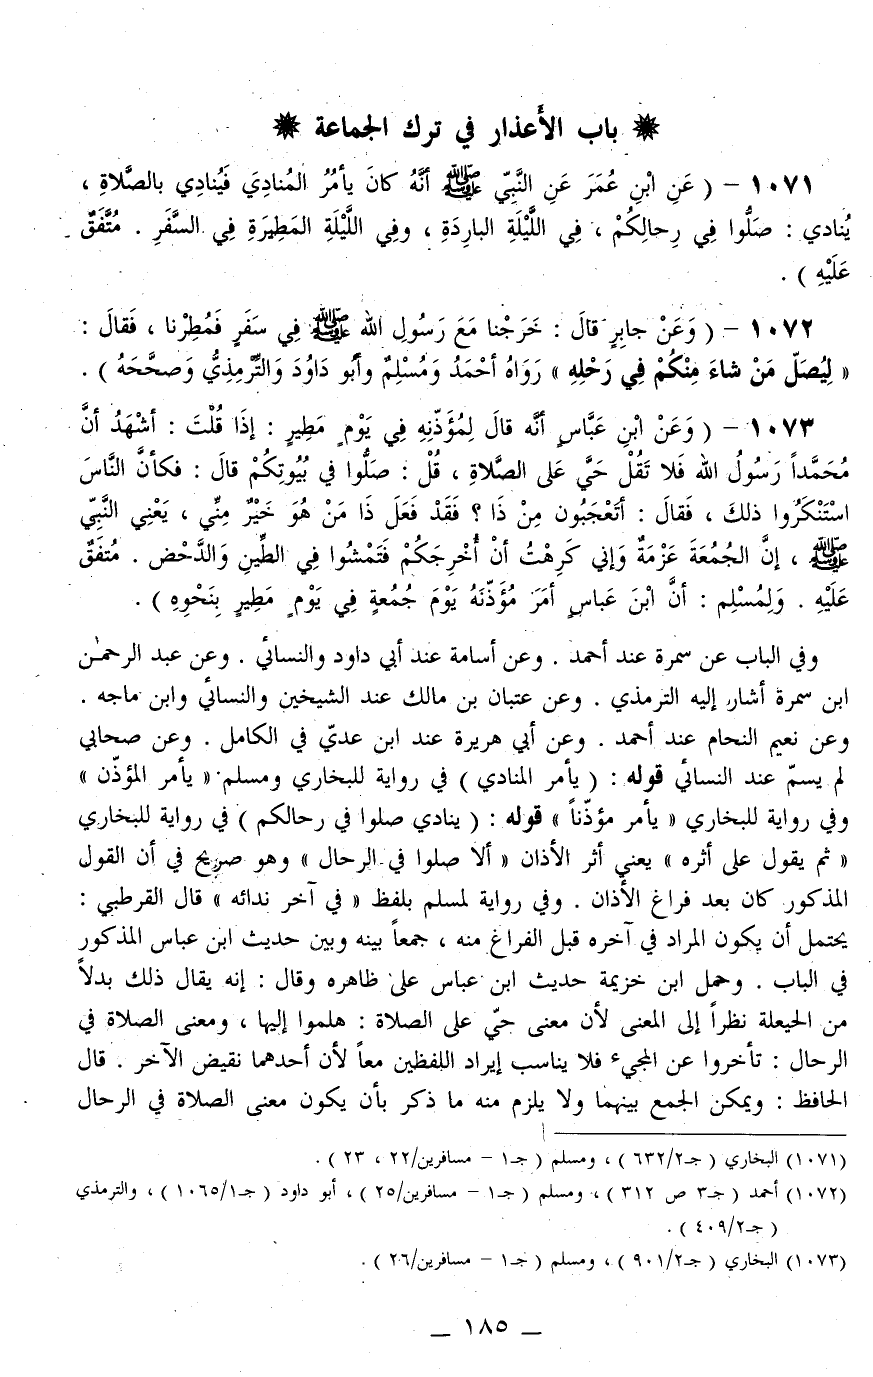 ❋ باب الأَعذار في ترك الجماعة ❋
١٠٧١ – ( عَنِ ابْنِ عُمَرَ عَنِ النَّبِيِّ ﷺ أنَّهُ كانَ يأمُرُ المُنادِيَ فَيُنادِي بالصَّلاةِ ،
يُنادي : صَلُّوا فِي رِحالِكُمْ ، فِي اللَّيْلَةِ البارِدَةِ ، وفِي اللَّيْلَةِ المَطِيرَةِ فِي السَّفَرِ . مُتَّفَقٌ
عَلَيْهِ ) .
١٠٧٢ – ( وَعَنْ جابِرٍ قالَ : خَرَجْنا مَعَ رَسُولِ الله ﷺ فِي سَفَرٍ فَمُطِرْنا ، فَقالَ :
« لِيُصَلِّ مَنْ شاءَ مِنْكُمْ فِي رَحْلِهِ » رَوَاهُ أحْمَدُ وَمُسْلِمٌ وأبُو دَاوُدَ وَالتِّرْمِذِيُّ وَصَحَّحَهُ ) .
١٠٧٣ – ( وَعَنْ ابْنِ عَبَّاسٍ أنَّه قالَ لِمُؤَذّنِهِ فِي يَوْمٍ مَطِيرٍ : إذَا قُلْتَ : أشْهَدُ أنَّ
مُحَمَّداً رَسُولُ الله فَلا تَقُلْ حَيَّ عَلى الصَّلاةِ ، قُلْ : صَلُّوا في بُيُوتِكُمْ قالَ : فكأنَّ النَّاسَ
اسْتَنْكَرُوا ذلكَ ، فَقالَ : أتَعْجَبُون مِنْ ذَا ؟ فَقَدْ فَعَلَ ذَا مَنْ هُوَ خَيْرٌ مِنِّي ، يَعْنِي النَّبِيَّ
ﷺ ، إنَّ الجُمُعَةَ عَزْمَةٌ وَإني كَرِهْتُ أنْ أُخْرِجَكُمْ فَتَمْشُوا فِي الطِّينِ وَالدَّحْضِ . مُتفَقٌ
عَلَيْهِ . وَلِمُسْلِم : أنَّ ابْنَ عَباسٍ أمَرَ مُؤَذّنَهُ يَوْمَ جُمُعةٍ فِي يَوْمٍ مَطِيرٍ بِنَحْوِهِ ) .
وفي الباب عن سمرة عند أحمد . وعن أسامة عند أبي داود والنسائي . وعن عبد الرحمٰن
ابن سمرة أشار إليه الترمذي . وعن عتبان بن مالك عند الشيخين والنسائي وابن ماجه .
وعن نعيم النحام عند أحمد . وعن أبي هريرة عند ابن عديّ في الكامل . وعن صحابي
لم يسمّ عند النسائي قوله : ( يأمر المنادي ) في رواية للبخاري ومسلم « يأمر المؤذّن »
وفي رواية للبخاري « يأمر مؤذّناً » قوله : ( ينادي صلوا في رحالكم ) في رواية للبخاري
« ثم يقول على أثره » يعني أثر الأذان « ألا صلوا في الرحال » وهو صريح في أن القول
المذكور كان بعد فراغ الأذان . وفي رواية لمسلم بلفظ « في آخر ندائه » قال القرطبي :
يحتمل أن يكون المراد في آخره قبل الفراغ منه ، جمعاً بينه وبين حديث ابن عباس المذكور
في الباب . وحمل ابن خزيمة حديث ابن عباس على ظاهره وقال : إنه يقال ذلك بدلاً
من الحيعلة نظراً إلى المعنى لأن معنى حيّ على الصلاة : هلموا إليها ، ومعنى الصلاة في
الرحال : تأخروا عن المجيء فلا يناسب إيراد اللفظين معاً لأن أحدهما نقيض الآخر . قال
الحافظ : ويمكن الجمع بينهما ولا يلزم منه ما ذكر بأن يكون معنى الصلاة في الرحال
(١٠٧١) البخاري ( جـ٦٣٢/٢ ) ، ومسلم ( جـ١ – مسافرين/٢٢ ، ٢٣ ) .
(١٠٧٢) أحمد ( جـ٣ ص ٣١٢ ) ، ومسلم ( جـ١ – مسافرين/٢٥ ) ، أبو داود ( جـ١٠٦٥/١ ) ، والترمذي
( جـ٤٠٩/٢ ) .
(١٠٧٣) البخاري ( جـ٩٠١/٢ ) ، ومسلم ( جـ١ – مسافرين/٢٦ ) .
– ١٨٥ –